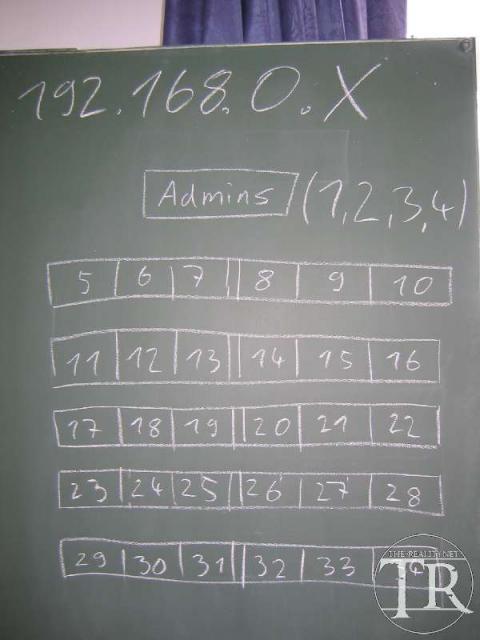 192.168.0.X
Admins (1,2,3,4)
5 6 7 8 9 10
11 12 13 14 15 16
17 18 19 20 21 22
23 24 25 26 27 28
29 30 31 32 33
THE-REALITY.NET
TR